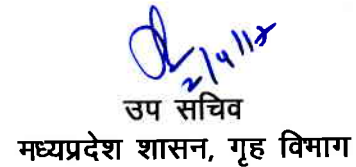 2/4/18
उप सचिव
मध्यप्रदेश शासन, गृह विभाग